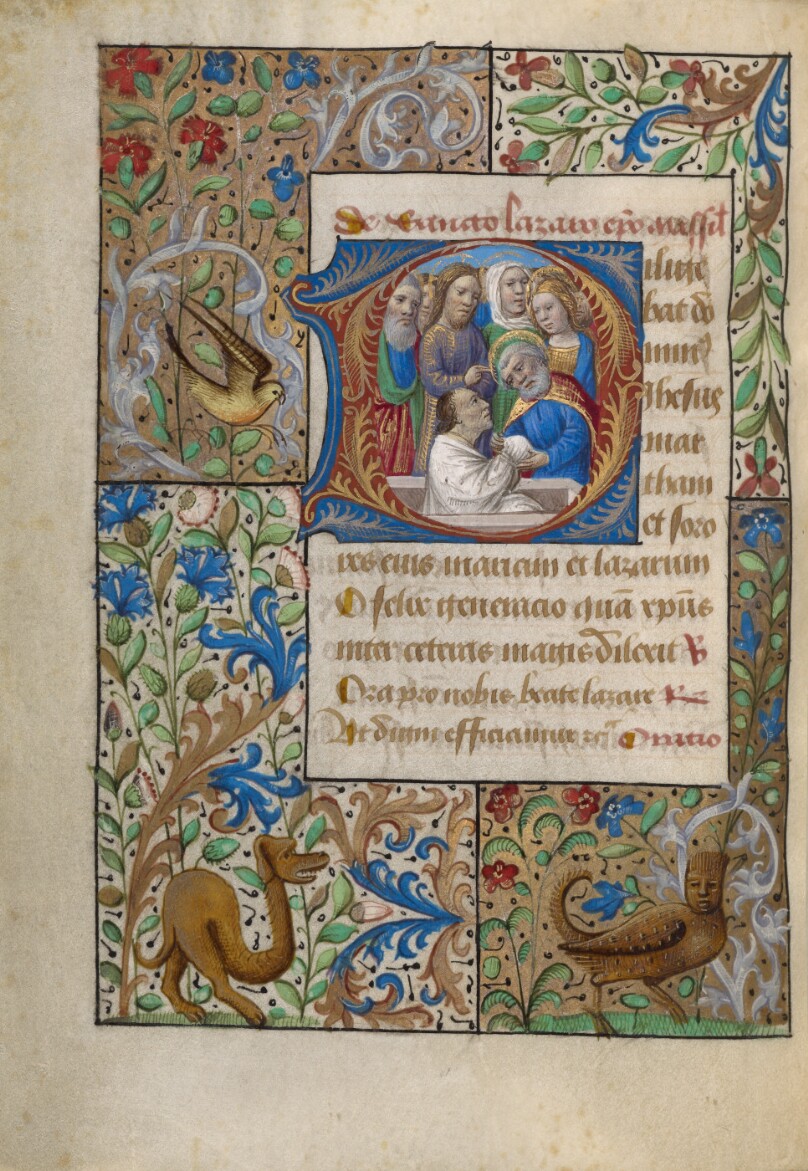 De sancto lazaro ep̄o massil̄
Diligebat
bat dō
minꝰ
Ihesus
mar
tham
et soro
res eius mariam et lazarum
O felix generacio quā xp̄us
inter ceteris magis dilexit ℣
Ora pro nobis beate lazare ℟
Ut digni efficiamur zc̄ Oratio